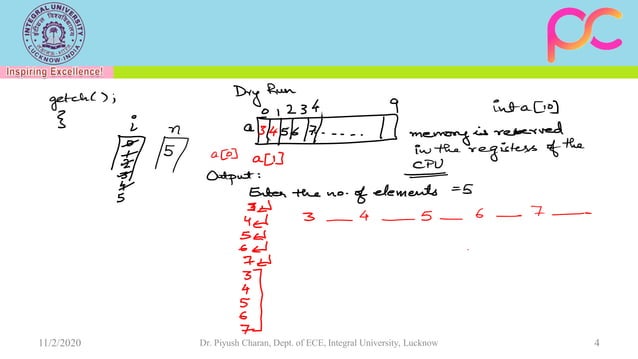 INTEGRAL UNIVERSITY
LUCKNOW-INDIA
Inspiring Excellence!
pc
getch();
}
i
n
0
1
2
3
4
5
5
Dry Run
0 1 2 3 4 9
a 3 4 5 6 7 . . . . .
a[0] a[1]
int a[10]
memory is reserved
in the registers of the
CPU
Output:
Enter the no. of elements = 5
3↵
4↵
5↵
6↵
7↵
3
4
5
6
7
3 __ 4 __ 5 __ 6 __ 7 __
11/2/2020
Dr. Piyush Charan, Dept. of ECE, Integral University, Lucknow
4